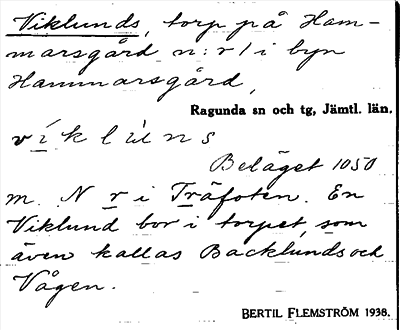 Viklunds, torp på Ham-
marsgård n:r 1 i byn
Hammarsgård,
Ragunda sn och tg, Jämtl. län.
víklùns
Beläget 1050
m. N r i Träfoten. En
Viklund bor i torpet, som
även kallas Backlunds och
Vågen.
BERTIL FLEMSTRÖM 1938.